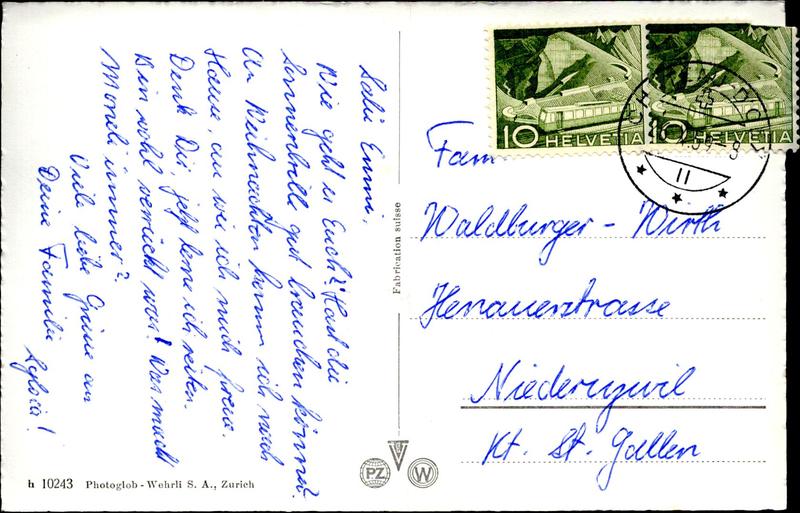 Salü Emmi,
Wie geht es Euch? Hast die
Sonnenbrille gut brauchen können?
An Weihnachten komm ich nach
Hause, au wie ich mich freue.
Denk Dir, jetzt lerne ich reiten.
Bin wohl verrückt was? Was macht
immer?
Viele liebe Grüsse an
Deine Familie
10 HELVETIA
10 HELVETIA
II
Fam
Waldburger - Wirth
Henauerstrasse
Niederuzwil
Kt. St. Gallen
Fabrication suisse
PZ
W
h 10243 Photoglob - Wehrli S. A., Zurich